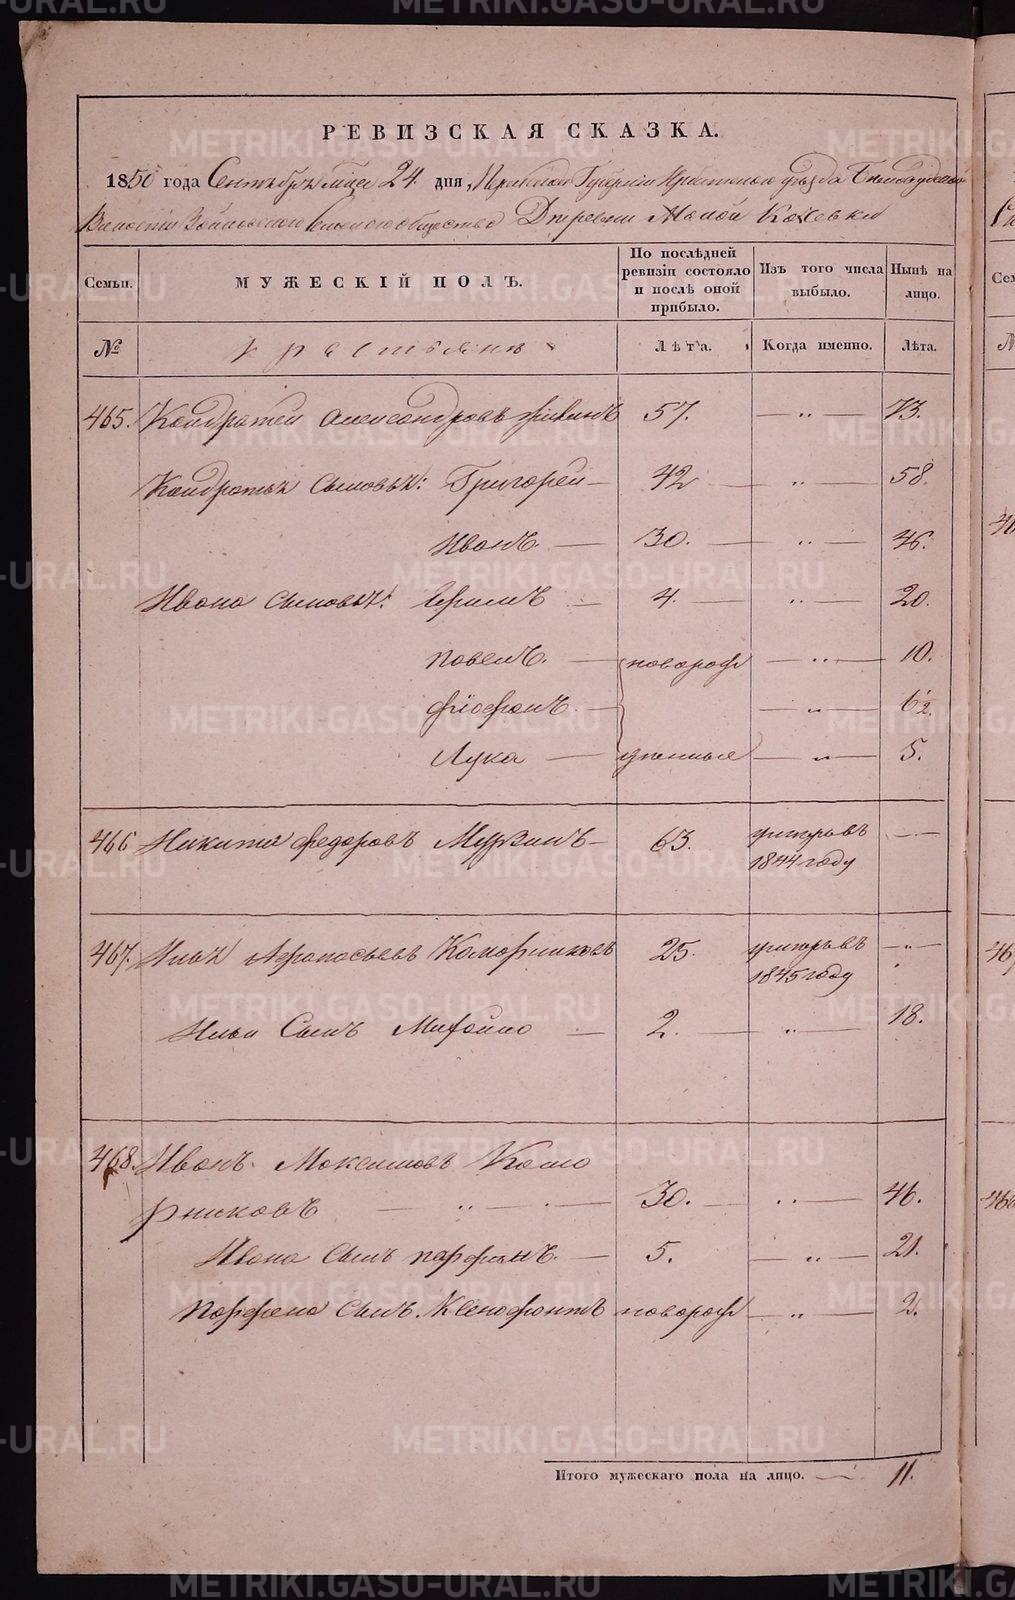 РЕВИЗСКАЯ СКАЗКА.
1850 года Сентября м̃ца 24 дня, Пермской Губернии Ирбитскаго уѣзда
Волости общества Деревни Малой Кочевки
Семьи. МУЖЕСКІЙ ПОЛЪ. По послѣдней ревизіи состояло и послѣ оной прибыло. Изъ того числа выбыло. Нынѣ на лицо.
№ Крестьяне Лѣта. Когда именно. Лѣта.
465. Кондратей Александровъ 57. — „ — 73.
Кондратья сыновья: Григорей — 42 — „ — 58.
Иванъ — 30. — „ — 46.
Ивана сыновья: Ефимъ — 4. — „ — 20.
Павелъ. — новорож — „ — 10.
— „ — 6½.
Лука — денные — „ — 5.
466 Никита Федоровъ Мурзинъ — 63. умеръ въ — „ —
1844 году
467. Илья Афонасьевъ Комарниковъ 25. умеръ въ — „ —
1845 году
Ильи Сынъ Михайло — 2. — „ — 18.
468. Иванъ Максимовъ Кома
рниковъ — „ — 30. — „ — 46.
Ивана сынъ парфенъ. — 5. — „ — 21.
Парфена сынъ Ксенофонтъ новорож — „ — 2.
Итого мужескаго пола на лицо. — 11.
METRIKI.GASO-URAL.RU